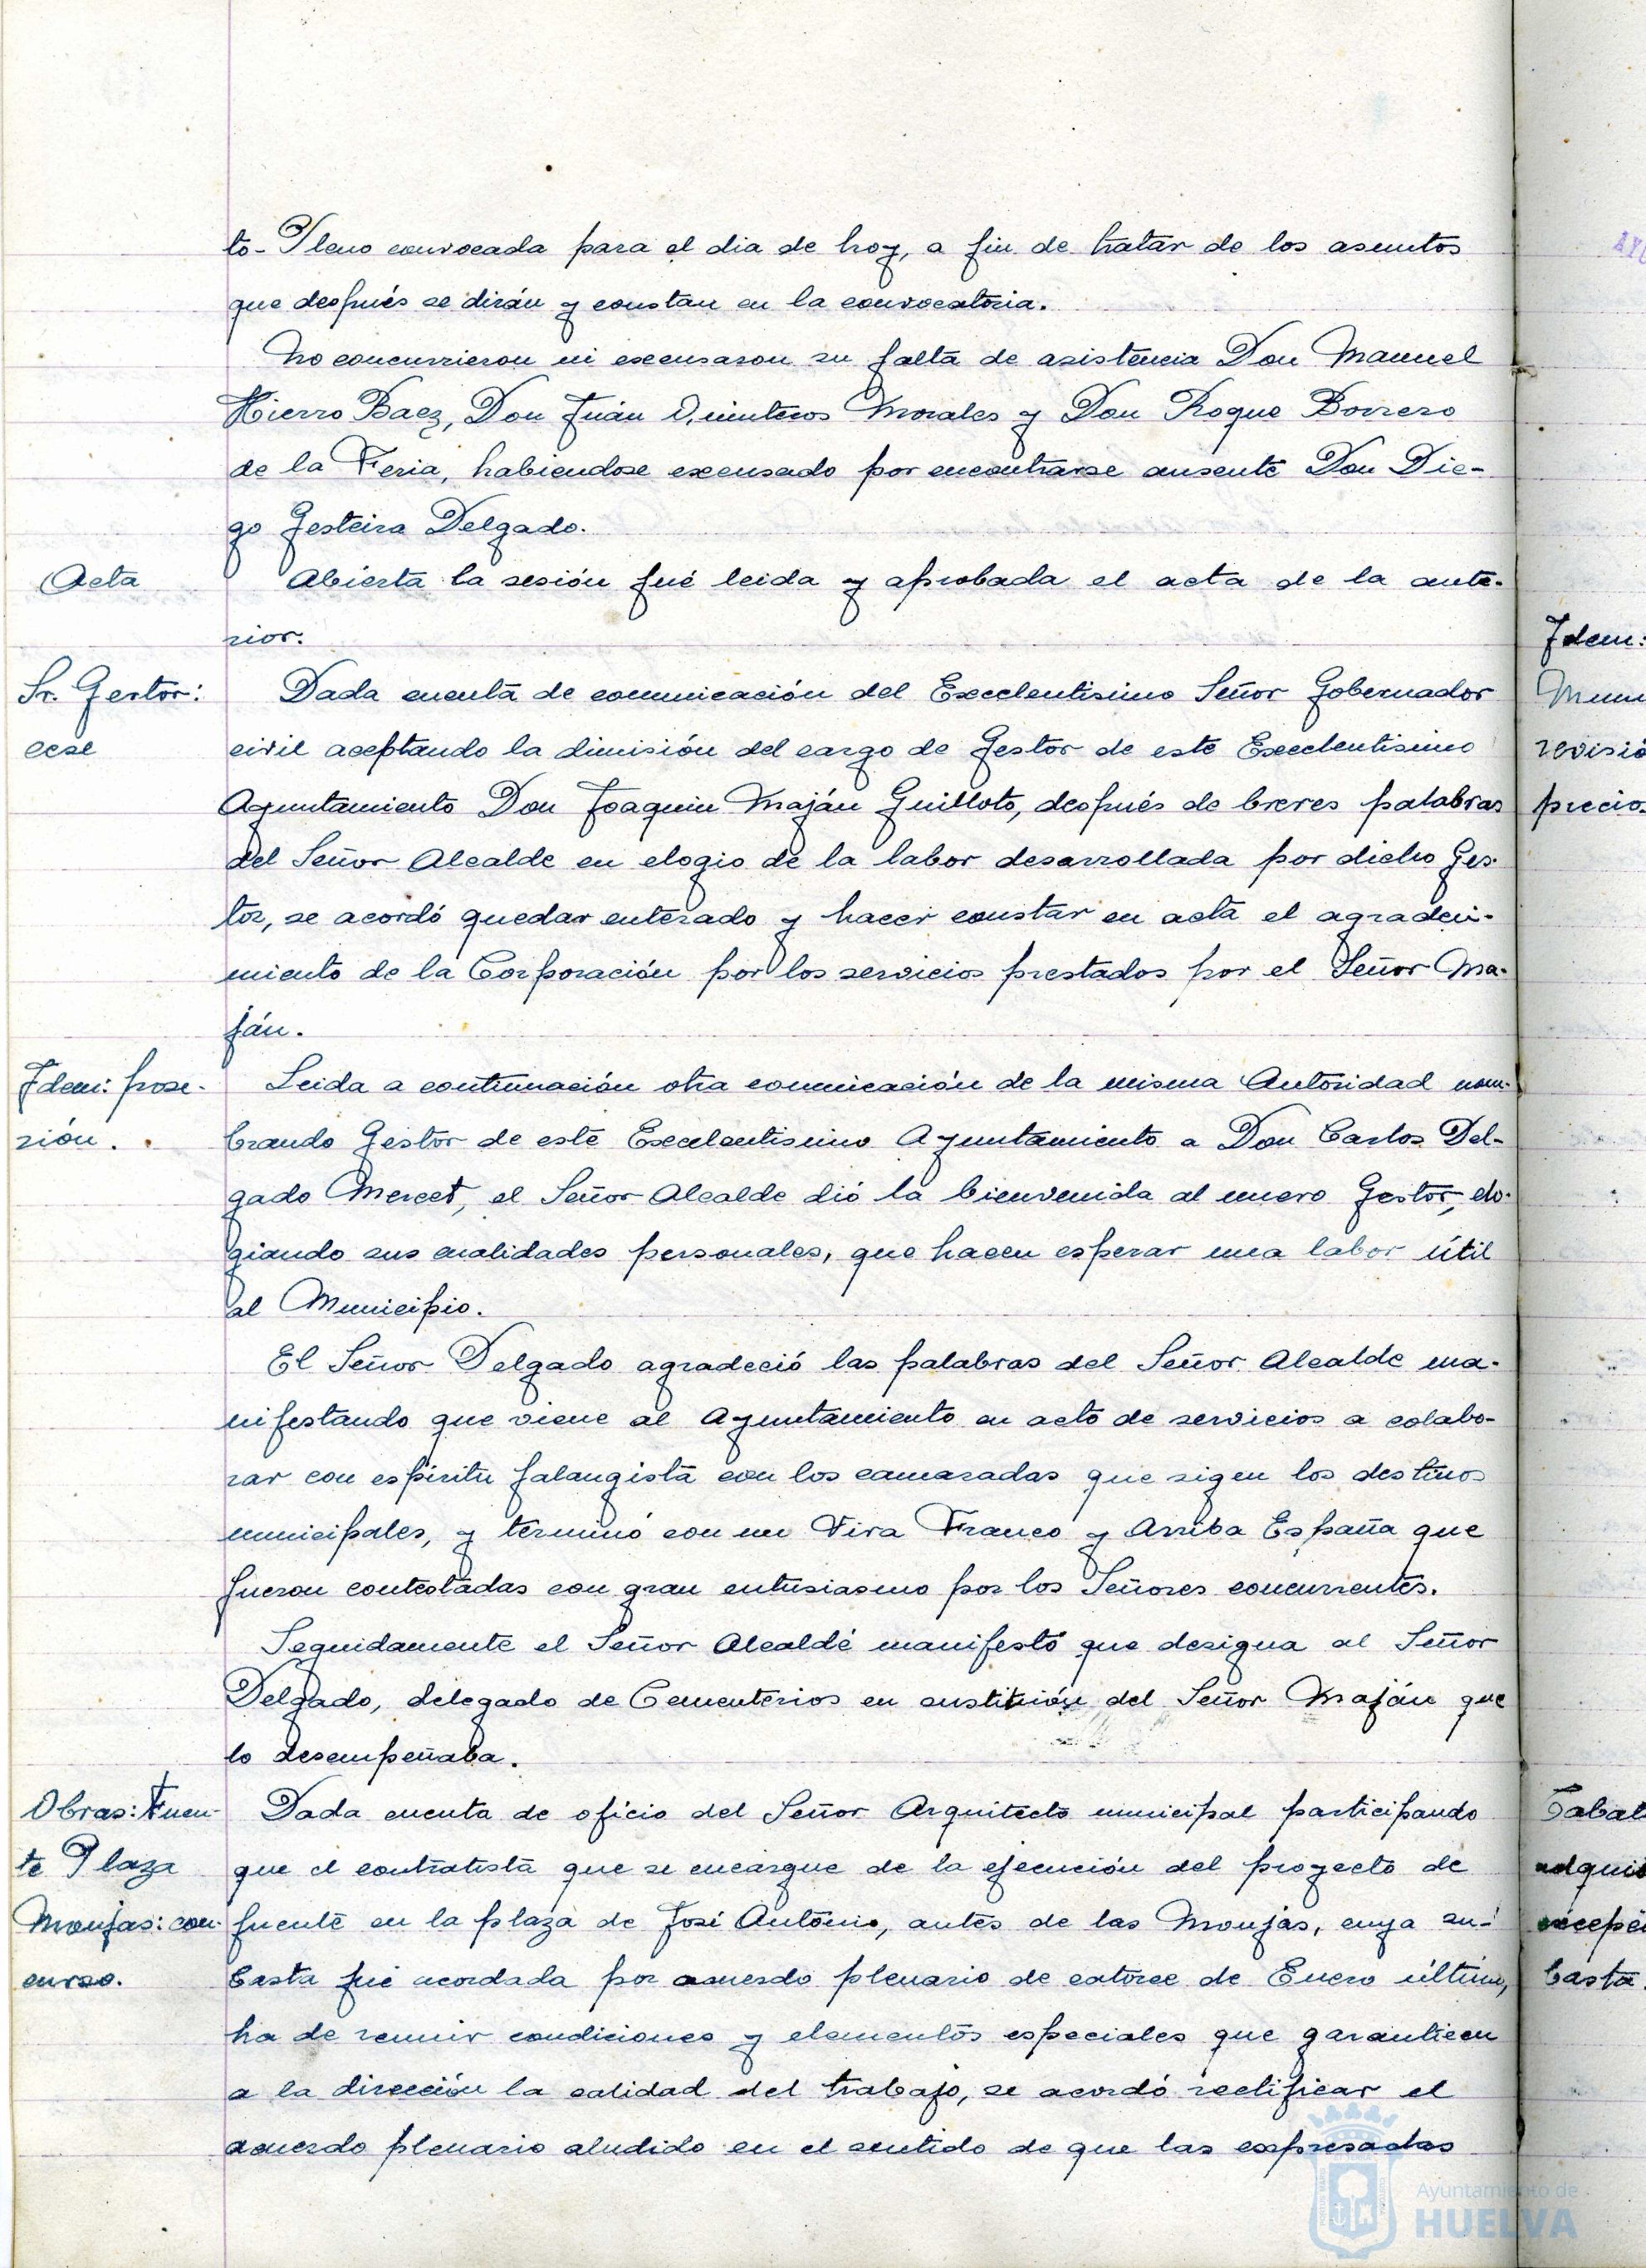 to-Pleno convocada para el dia de hoy, a fin de tratar de los asuntos
que después se dirán y constan en la convocatoria.
No concurrieron ni excusaron su falta de asistencia Don Manuel
Hierro Baez, Don Juán Quinteros Morales y Don Roque Borrero
de la Feria, habiendose excusado por encontrarse ausente Don Die-
go Gesteira Delgado.
Acta
Abierta la sesión fué leida y aprobada el acta de la ante-
rior.
Sr. Gestor:
cese
Dada cuenta de comunicación del Excelentisimo Señor Gobernador
civil aceptando la dimisión del cargo de Gestor de este Excelentisimo
Ayuntamiento Don Joaquin Maján Guilloto, después de breves palabras
del Señor Alcalde en elogio de la labor desarrollada por dicho Ges-
tor, se acordó quedar enterado y hacer constar en acta el agradeci-
miento de la Corporación por los servicios prestados por el Señor Ma-
ján.
Idem: pose-
sión.
Leida a continuación otra comunicación de la misma Autoridad nom-
brando Gestor de este Excelentisimo Ayuntamiento a Don Carlos Del-
gado Mercet, el Señor Alcalde dió la bienvenida al nuevo Gestor, elo-
giando sus cualidades personales, que hacen esperar una labor útil
al Municipio.
El Señor Delgado agradeció las palabras del Señor Alcalde ma-
nifestando que viene al Ayuntamiento en acto de servicios a colabo-
rar con espiritu falangista con los camaradas que rigen los destinos
municipales, y terminó con un Viva Franco y Arriba España que
fueron contestadas con gran entusiasmo por los Señores concurrentes.
Seguidamente el Señor Alcalde manifestó que designa al Señor
Delgado, delegado de Cementerios en sustitución del Señor Maján que
lo desempeñaba.
Obras: Fuen-
te Plaza
Monjas: con-
curso.
Dada cuenta de oficio del Señor Arquitecto municipal participando
que el contratista que se encargue de la ejecución del proyecto de
fuente en la plaza de José Antonio, antes de las Monjas, cuya su-
basta fué acordada por acuerdo plenario de catorce de Enero último,
ha de reunir condiciones y elementos especiales que garanticen
a la dirección la calidad del trabajo, se acordó rectificar el
acuerdo plenario aludido en el sentido de que las expresadas
Idem:
revisió
precio
basta.
Ayuntamiento de
HUELVA